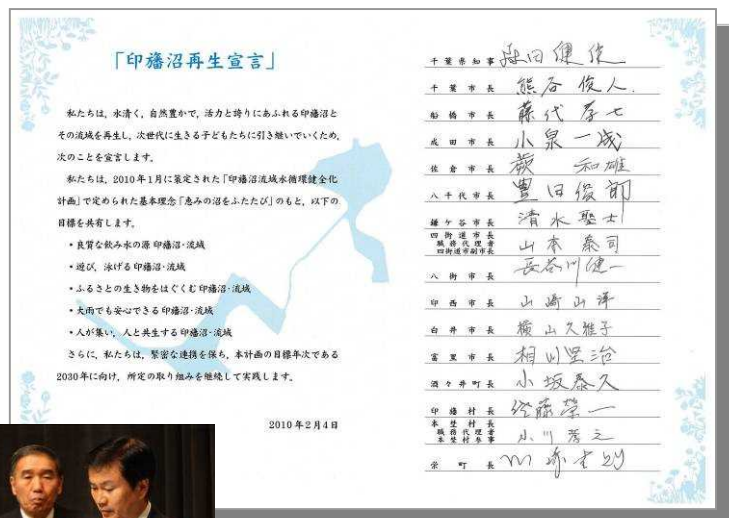 「印旛沼再生宣言」
私たちは、水清く、自然豊かで、活力と誇りにあふれる印旛沼と
その流域を再生し、次世代に生きる子どもたちに引き継いでいくため、
次のことを宣言します。
私たちは、2010年1月に策定された「印旛沼流域水循環健全化
計画」で定められた基本理念「恵みの沼をふたたび」のもと、以下の
目標を共有します。
・良質な飲み水の源 印旛沼・流域
・遊び、泳げる印旛沼・流域
・ふるさとの生き物をはぐくむ印旛沼・流域
・大雨でも安心できる印旛沼・流域
・人が集い、人と共生する印旛沼・流域
さらに、私たちは、緊密な連携を保ち、本計画の目標年次である
2030年に向け、所定の取り組みを継続して実践します。
2010年2月4日
千葉県知事 森田健作
千葉市長 熊谷俊人
船橋市長 藤代孝七
成田市長 小泉一成
佐倉市長 蕨 和雄
八千代市長 豊田俊郎
鎌ケ谷市長 清水聖士
四街道市長
職務代理者
四街道市副市長 山本泰司
八街市長 長谷川健一
印西市長 山﨑山洋
白井市長 横山久雅子
富里市長 相川堅治
酒々井町長 小坂泰久
印旛村長 佐藤榮一
本埜村長
職務代理者
本埜村参事 小川孝之
栄町長